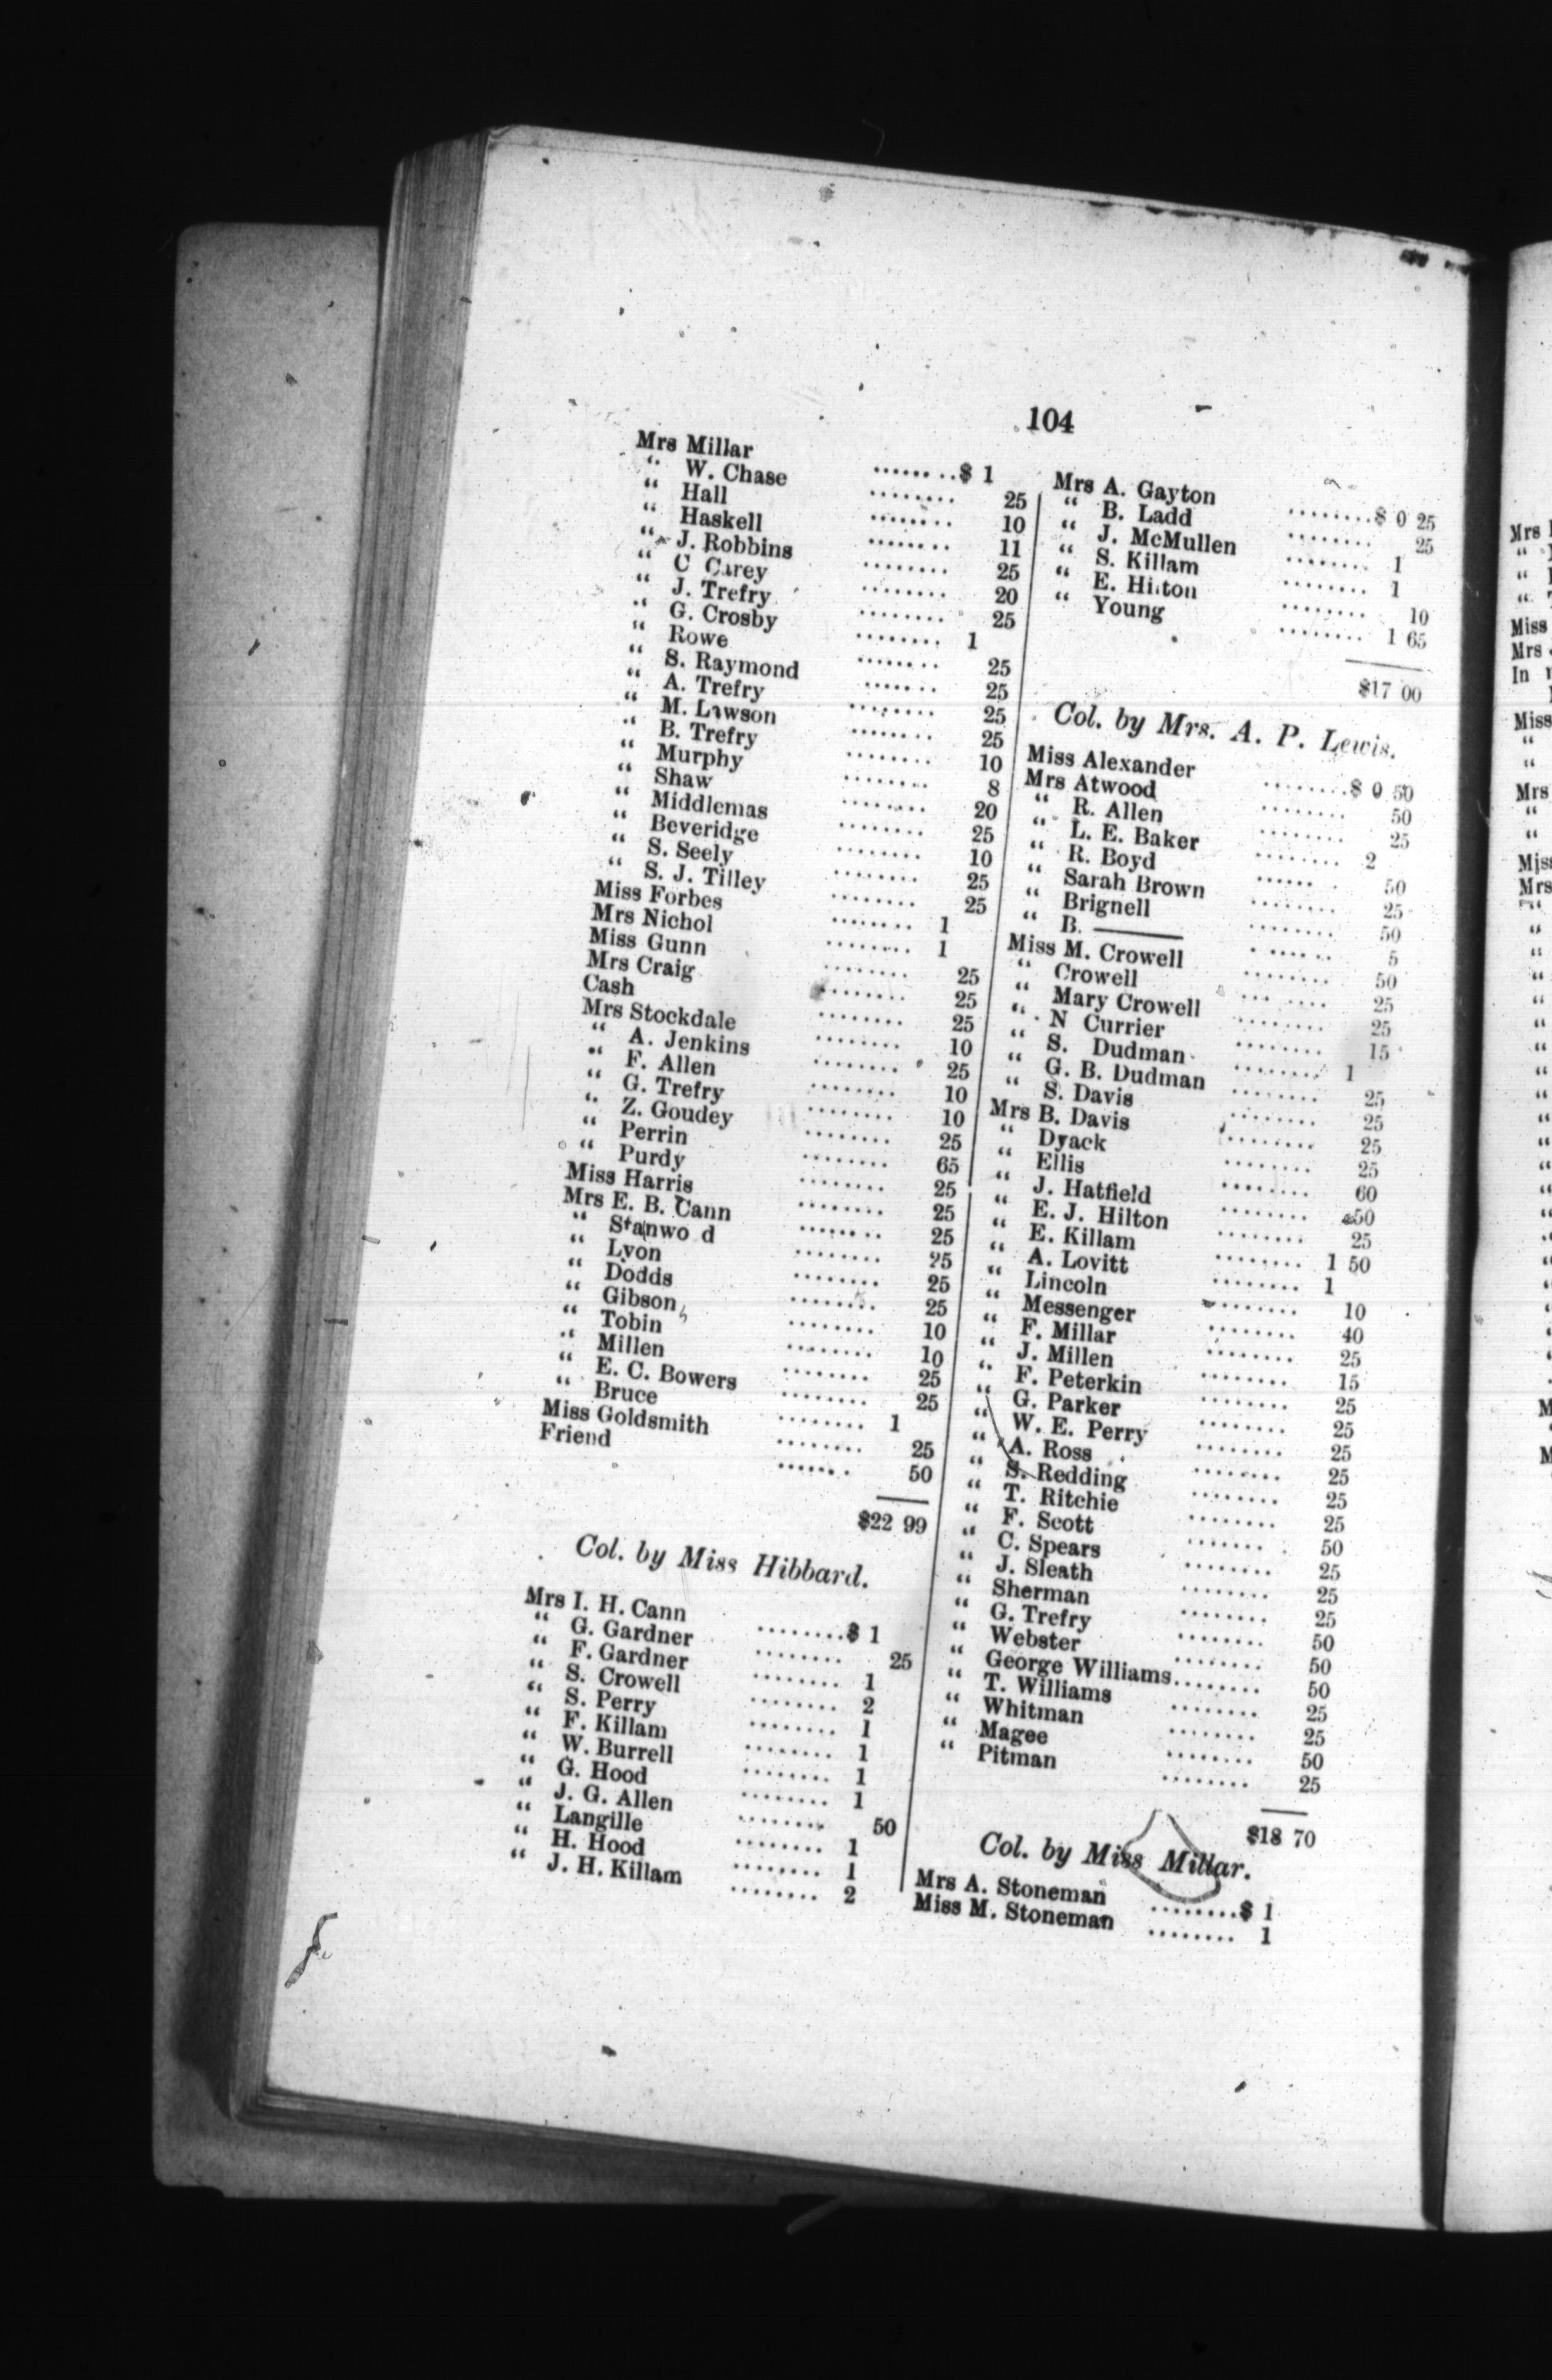 104
Mrs Millar ........$ 1
“ W. Chase ........ 25
“ Hall ........ 10
“ Haskell ........ 11
“ J. Robbins ........ 25
“ C Carey ........ 20
“ J. Trefry ........ 25
“ G. Crosby ........ 1
“ Rowe ........ 25
“ S. Raymond ....... 25
“ A. Trefry ........ 25
“ M. Lawson ........ 25
“ B. Trefry ........ 10
“ Murphy ........ 8
“ Shaw ........ 20
“ Middlemas ........ 25
“ Beveridge ........ 10
“ S. Seely ........ 25
“ S. J. Tilley ........ 25
Miss Forbes ........ 1
Mrs Nichol ........ 1
Miss Gunn ........ 25
Mrs Craig ........ 25
Cash ........ 25
Mrs Stockdale ........ 10
“ A. Jenkins ........ 25
“ F. Allen ........ 10
“ G. Trefry ........ 10
“ Z. Goudey ........ 25
“ Perrin ........ 65
“ Purdy ........ 25
Miss Harris ........ 25
Mrs E. B. Cann ........ 25
“ Stanwo d ........ 25
“ Lyon ........ 25
“ Dodds ........ 25
“ Gibson ........ 10
“ Tobin ........ 10
“ Millen ........ 25
“ E. C. Bowers ........ 25
“ Bruce ........ 1
Miss Goldsmith ........ 25
Friend ....... 50
$22 99
Col. by Miss Hibbard.
Mrs I. H. Cann ........$ 1
“ G. Gardner ........ 25
“ F. Gardner ........ 1
“ S. Crowell ........ 2
“ S. Perry ........ 1
“ F. Killam ........ 1
“ W. Burrell ........ 1
“ G. Hood ........ 1
“ J. G. Allen ........ 50
“ Langille ........ 1
“ H. Hood ........ 1
“ J. H. Killam ........ 2
Mrs A. Gayton ........$ 0 25
“ B. Ladd ........ 25
“ J. McMullen ........ 1
“ S. Killam ........ 1
“ E. Hilton ........ 10
“ Young ........ 1 65
$17 00
Col. by Mrs. A. P. Lewis.
Miss Alexander ........$ 0 50
Mrs Atwood ........ 50
“ R. Allen ........ 25
“ L. E. Baker ........ 2
“ R. Boyd ...... 50
“ Sarah Brown ........ 25
“ Brignell ........ 50
“ B. —— ...... 5
Miss M. Crowell ........ 50
“ Crowell ........ 25
“ Mary Crowell ........ 25
“ N Currier ........ 15
“ S. Dudman ........ 1
“ G. B. Dudman ........ 25
“ S. Davis ........ 25
Mrs B. Davis ........ 25
“ Dyack ........ 25
“ Ellis ........ 60
“ J. Hatfield ........ 50
“ E. J. Hilton ........ 25
“ E. Killam ........ 1 50
“ A. Lovitt ........ 1
“ Lincoln ........ 10
“ Messenger ........ 40
“ F. Millar ........ 25
“ J. Millen ........ 15
“ F. Peterkin ........ 25
“ G. Parker ........ 25
“ W. E. Perry ........ 25
“ A. Ross ........ 25
“ S. Redding ........ 25
“ T. Ritchie ........ 25
“ F. Scott ........ 50
“ C. Spears ........ 25
“ J. Sleath ........ 25
“ Sherman ........ 25
“ G. Trefry ........ 50
“ Webster ........ 50
“ George Williams........ 50
“ T. Williams ........ 25
“ Whitman ........ 25
“ Magee ........ 50
“ Pitman ........ 25
$18 70
Col. by Miss Millar.
Mrs A. Stoneman ........$ 1
Miss M. Stoneman ........ 1